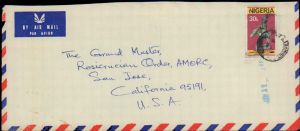 BY AIR MAIL
PAR AVION
NIGERIA
30k
The Grand Master,
Rosicrucian Order, AMORC,
San Jose,
California 95191,
U.S.A.